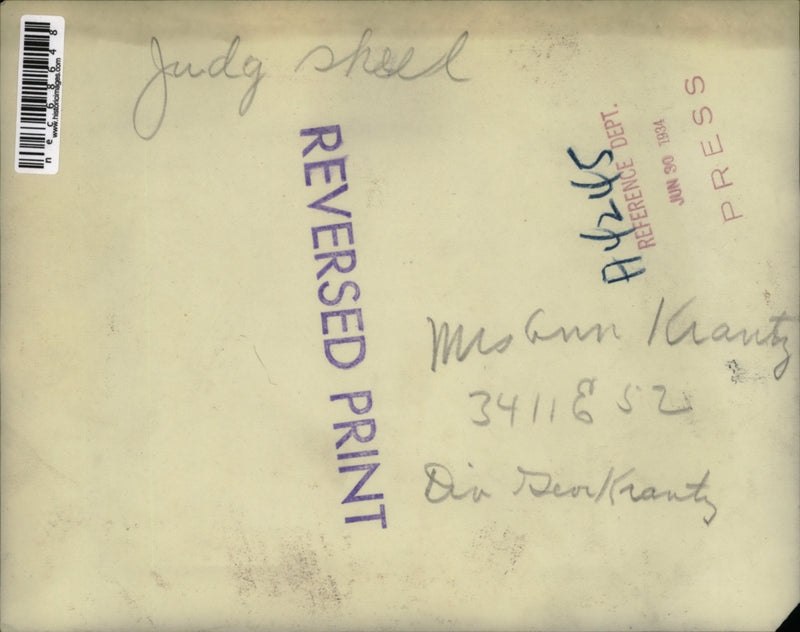 Judg
REVERSED PRINT
A4245
REFERENCE DEPT.
JUN 30 1934
PRESS
Mrs Ann Krantz
3411 E 52
Div Geo Krantz
nec68648
www.historicimages.com